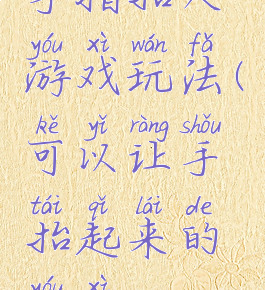 手指抬人
yóu xì wán fǎ
游戏玩法(
kě yǐ ràng shǒu
可以让手
tái qǐ lái de
抬起来的
yóu xì